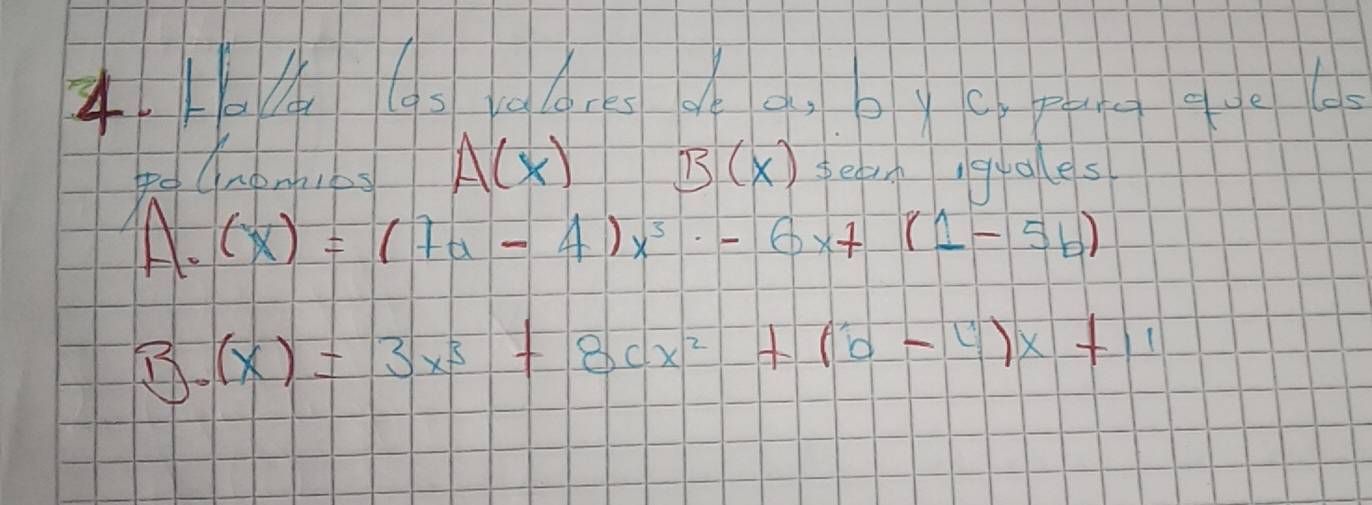 4. Halla los valores de a, b y c, para que los
polinomios A(x) B(x) sean iguales.
A.(x) = (7a - 4)x³ - 6x + (1 - 5b)
B.(x) = 3x³ + 8cx² + (b - 4)x + 11